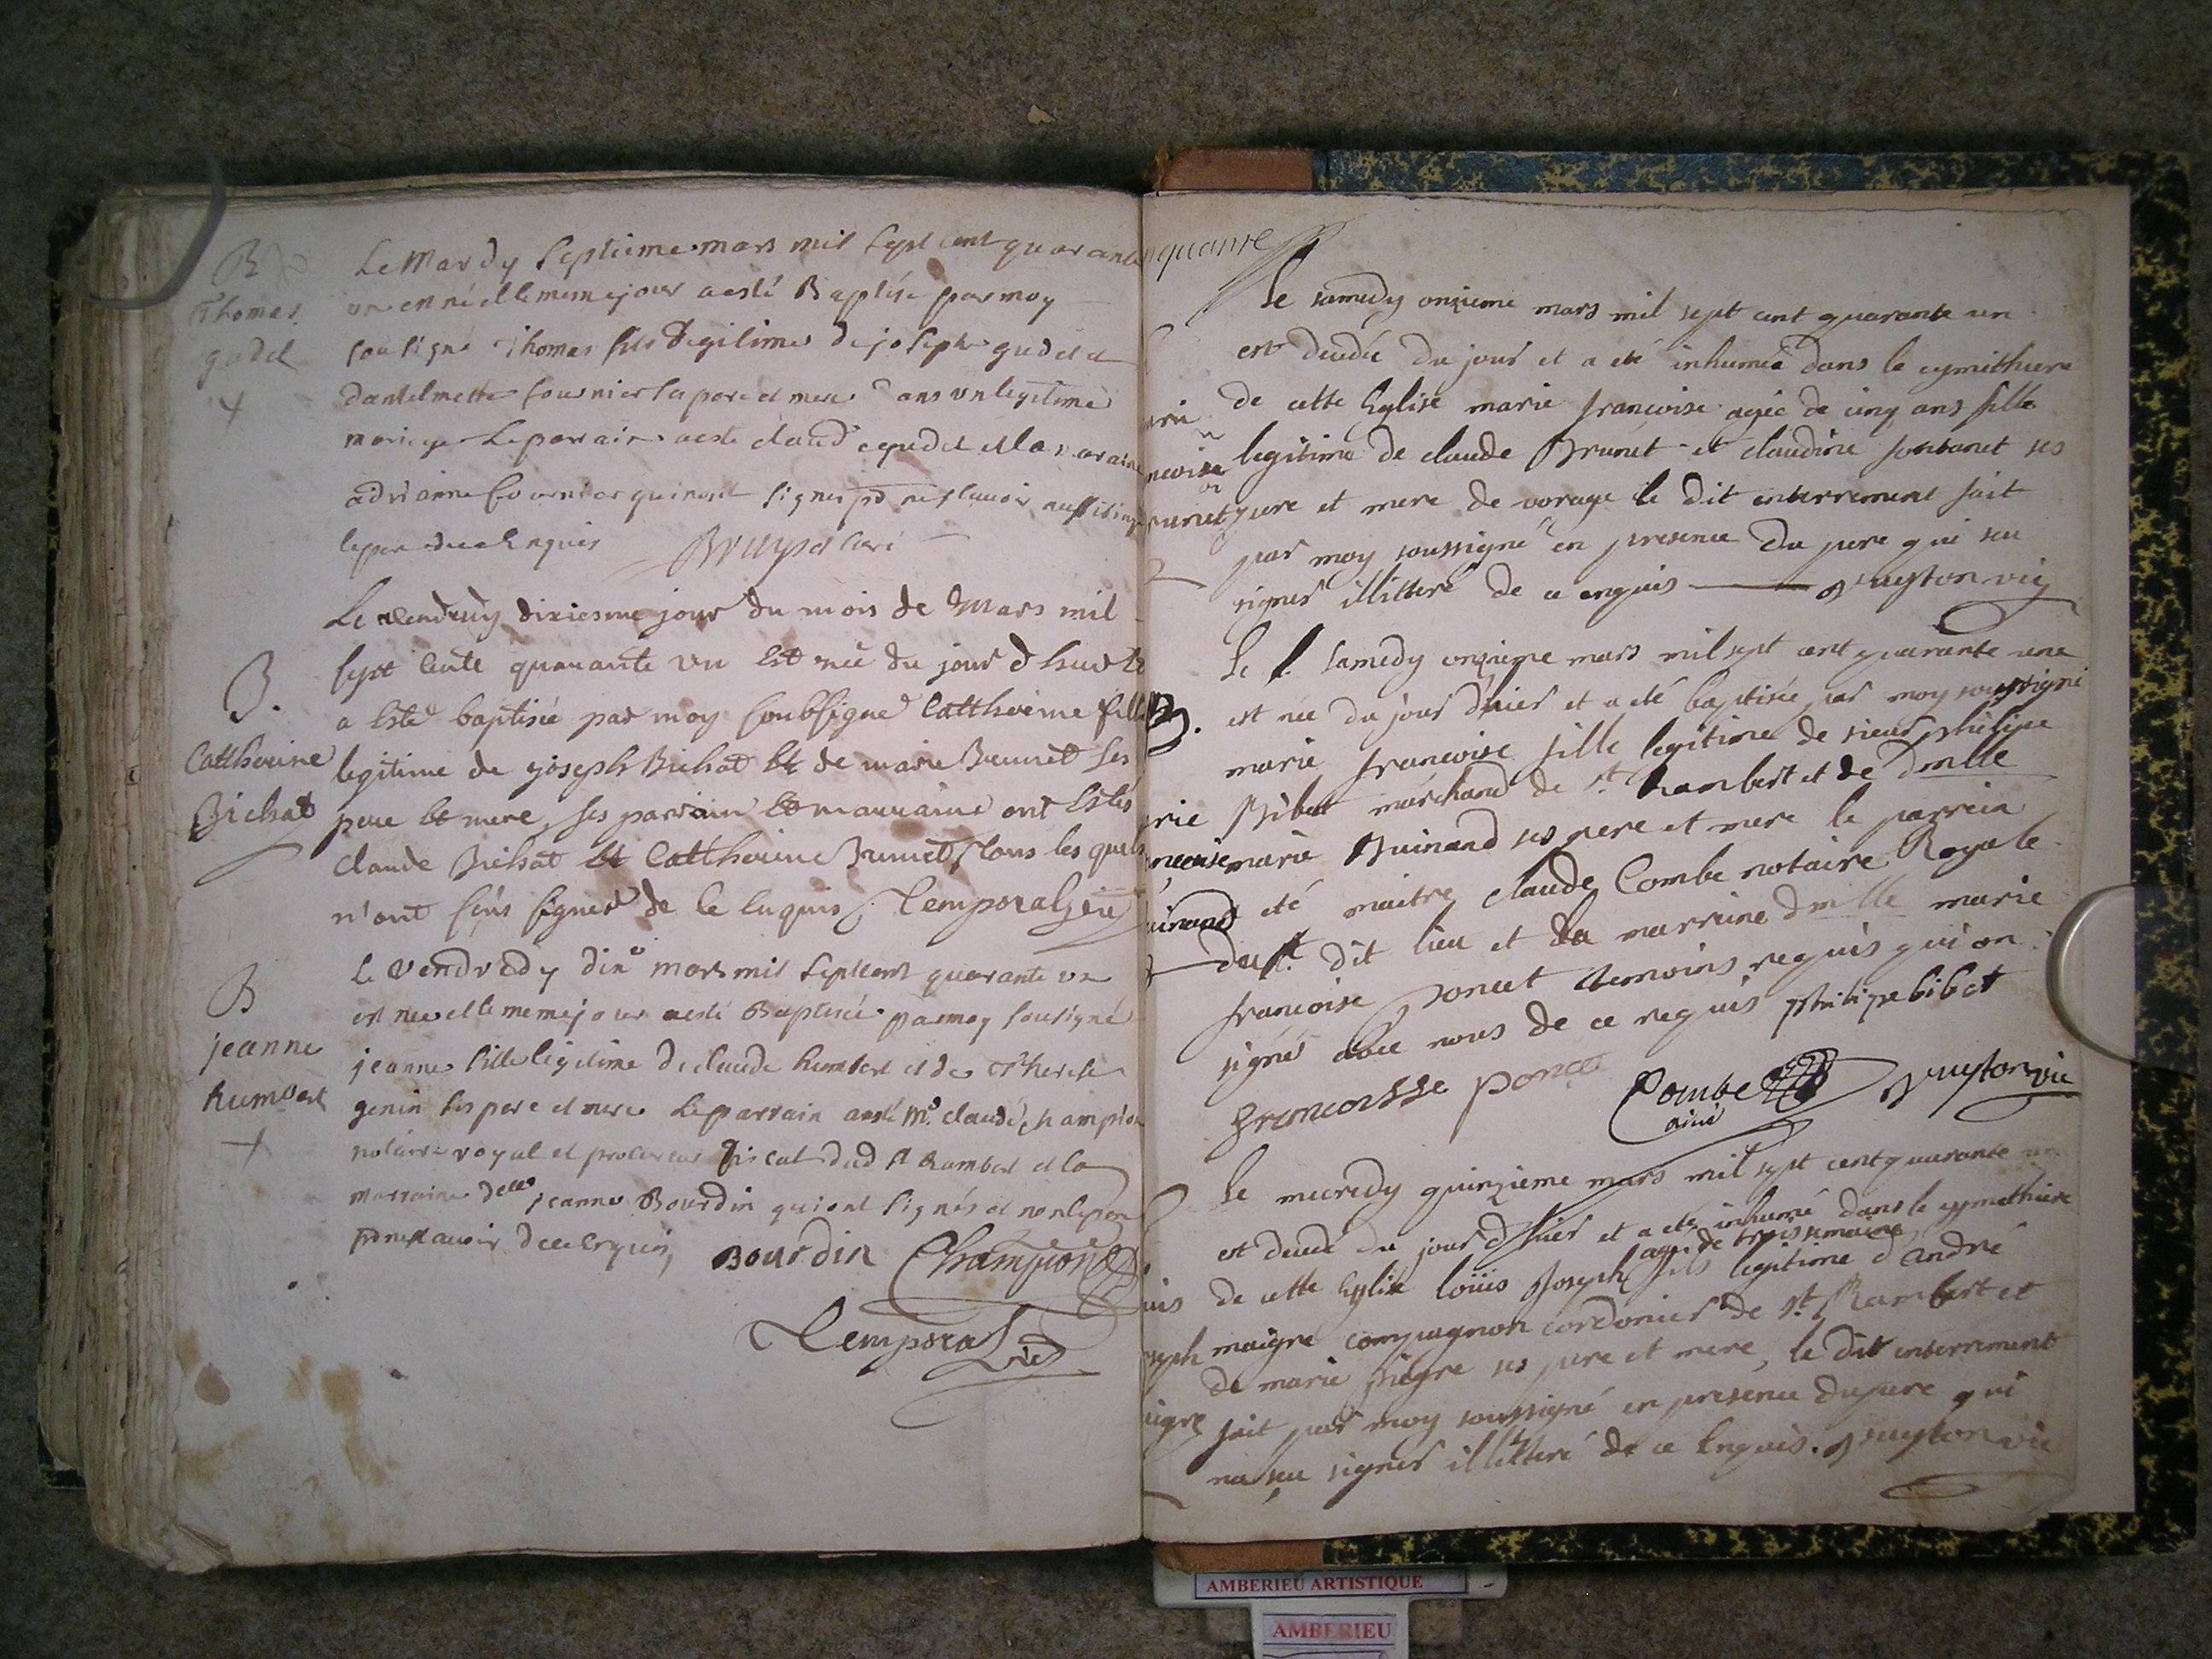 B
Thomas
gudet
+
Le Mardy septieme mars mil sept cent quarante
un est né et le meme jour a esté Baptisé par moy
sousigné Thomas fils Legitime de joseph gudet et
mariage Le parrain a esté claude gudet et la maraine
adrianne fournier qui n'ont signés pr ne scavoir aussi
le pere de ce Enquis
B.
Cattherine
Bichat
Le vendredy dixiesme jour du mois de Mars mil
sept cents quarante un Est née du jour d'huy et
a Esté baptisée par moy soubsigné Cattherine fille
legitime de joseph Bichat Et de marie Brunet ses
pere et mere, ses parrain Et marraine ont Estés
claude Bichat Et Cattherine Brunet tous les quels
n'ont sçus signer de ce Enquis, Temporal vic
B
jeanne
humbert
+
Le vendredy dixe mars mil sept cent quarante un
est née et le meme jour a esté Baptisée par moy sousigné
jeanne fille legitime de claude humbert et de Therese
genin ses pere et mere Le parrain a esté Me claude champion
notaire royal et procureur fiscal dud St Rambert et la
marraine delle jeanne Bourdin qui ont signés et non le pere
pr ne scavoir de ce Enquis,
Bourdin Champion
Temporal vic
Le samedy onzieme mars mil sept cent quarante un
est decedée du jour et a été inhumée dans le cymithiere
de cette Eglise marie françoise agée de cinq ans fille
legitime de claude Brunet et claudine fontanet ses
pere et mere de vorage le dit enterrement fait
par moy soussigné en presence du pere qui seu
signer illitteré de ce enquis vic
B.
Le samedy onzieme mars mil sept cent quarante une
est née du jour d'hier et a été baptisée par moy soussigné
marie françoise fille legitime de sieur philipe
Bibet marchand de St Rambert et de Dmlle
marie Guinand ses pere et mere le parrein
été maitre claude Combe notaire Royale
du dit lieu et la marreine dmlle marie
françoise poncet temoins requis qui on
signés avec nous de ce requis philipe bibet
francoisse ponce
Combe
ainé
Le mecredy quinzieme mars mil sept cent quarante un
est decedé du jour d'hier et a eté inhumé dans le cymethiere
agé de trois semaine
de cette Eglise loüis Joseph fils legitime d'andré
maigre compagnon cordonier de St Rambert et
de marie ses pere et mere, le dit enterrement
fait par moy soussigné en presence du pere qui
na seu signer illitteré de ce Enquis. vic
AMBERIEU ARTISTIQUE
AMBERIEU